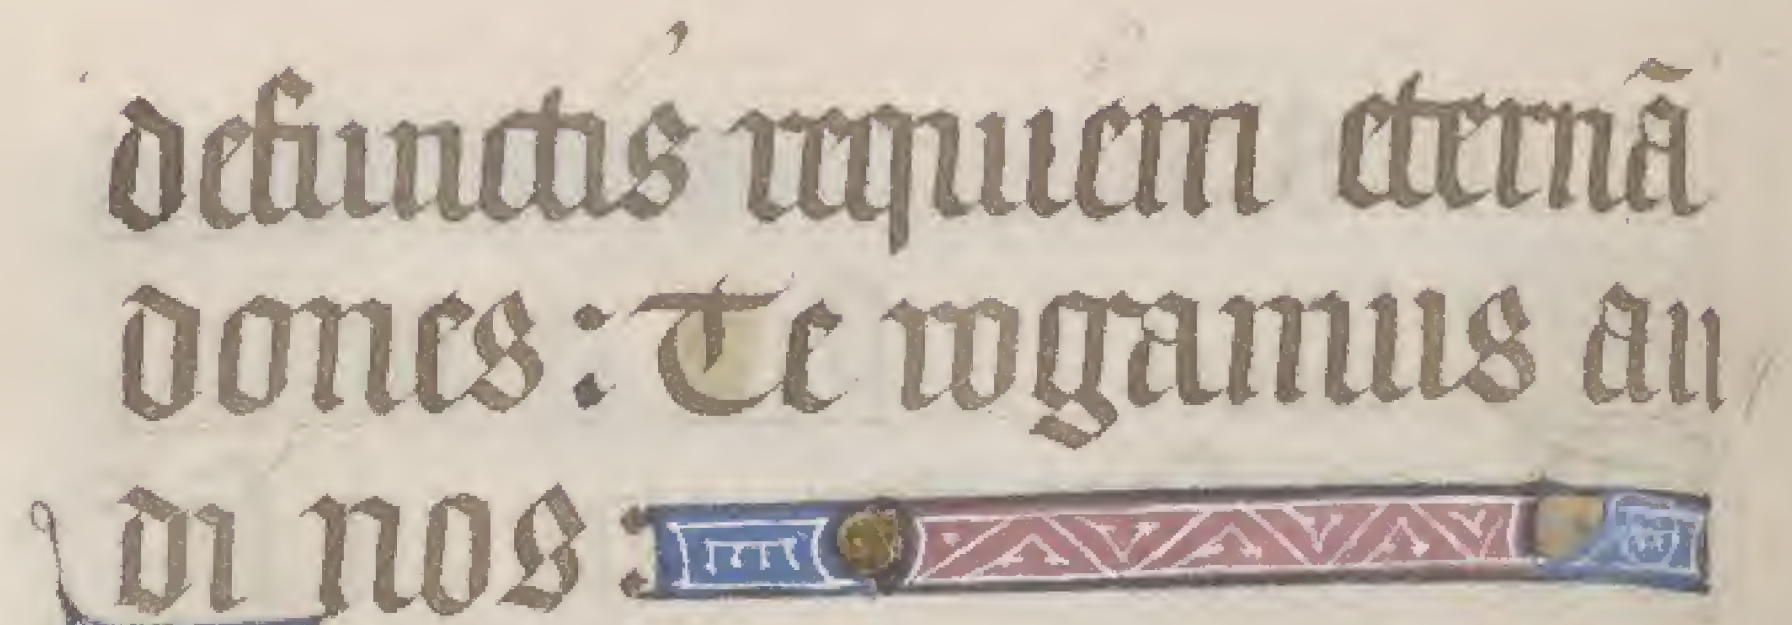 defunctis requiem eternã
dones: Te rogamus au
di nos: